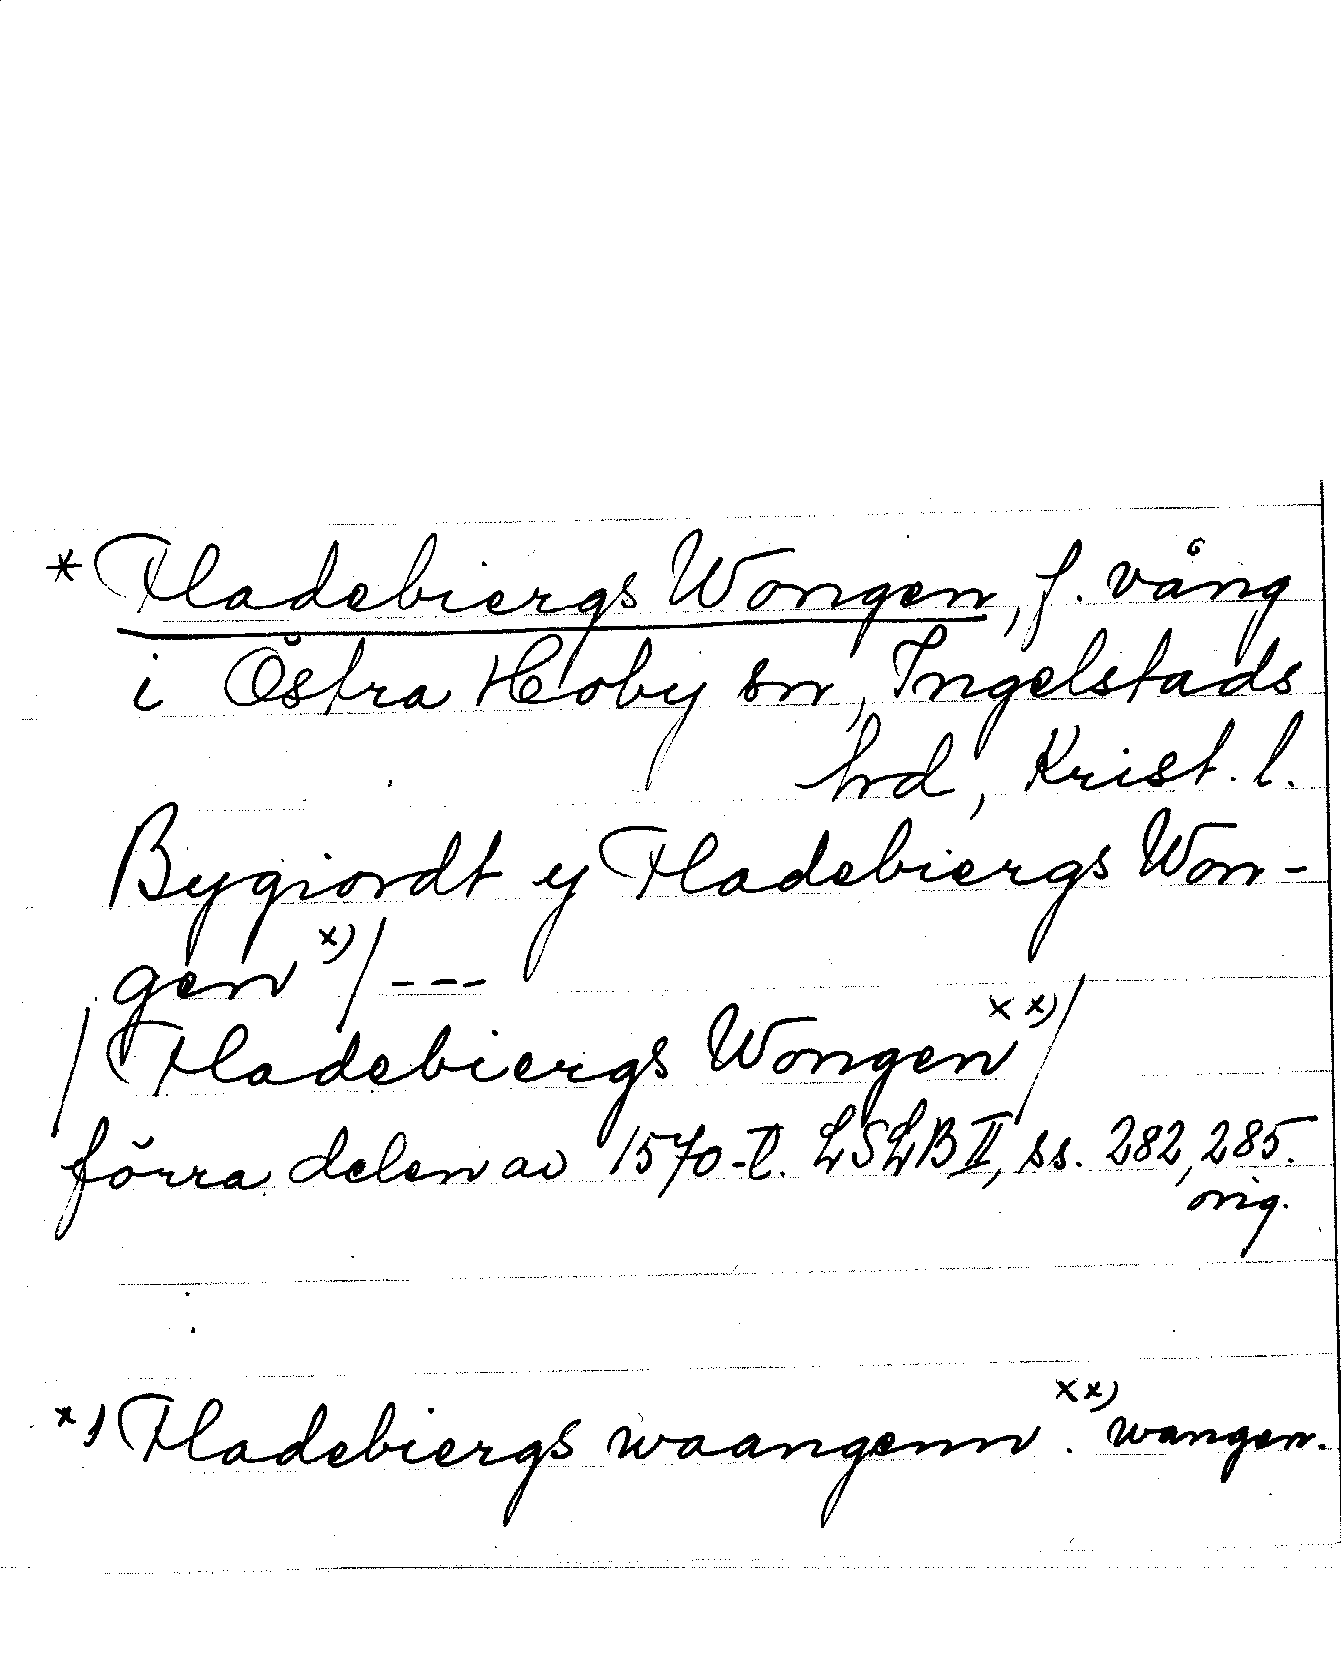 * Fladebiergs Wongen, f. vång
i Östra Hoby sn, Ingelstads
hd, Krist. l.
Bygiordt y Fladebiergs Won-
gen x) / - - -
/ Fladebiergs Wongen x x) /
förra delen av 1570-t. LSLB II, ss. 282, 285.
orig.
x) Fladebiergs waangenn. x x) wangen.